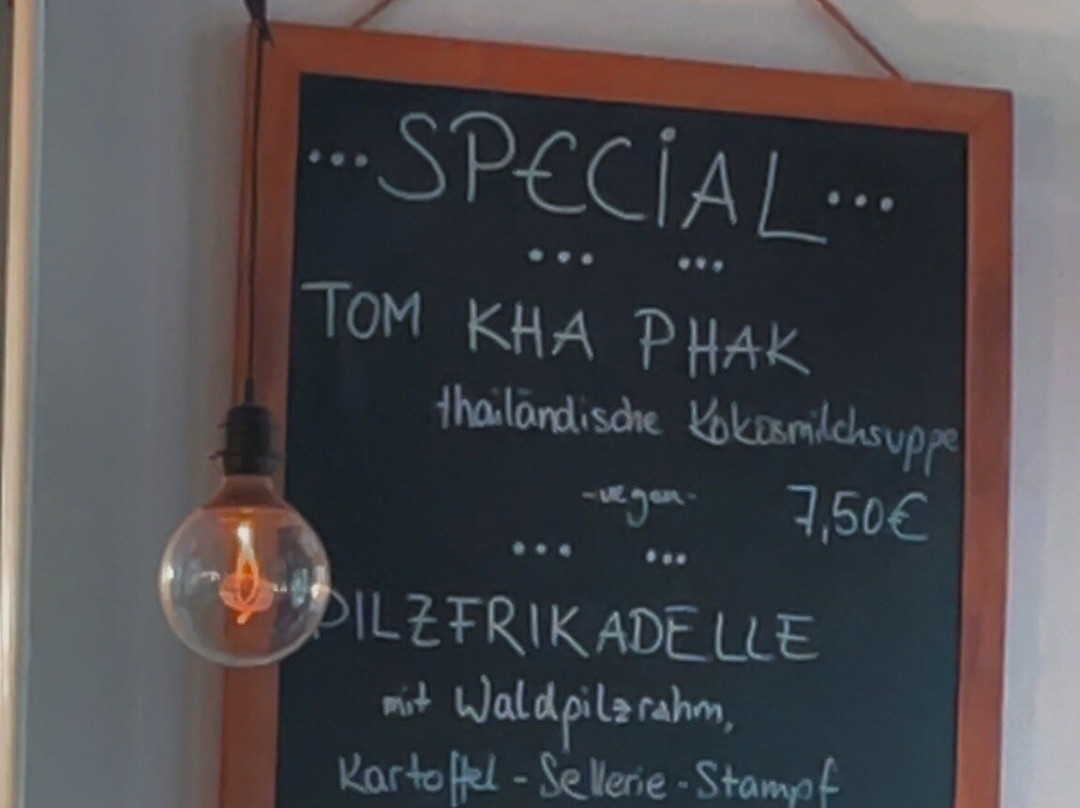 ...SPECIAL...
... ...
TOM KHA PHAK
thailändische Kokosmilchsuppe
-vegan- 7,50€
... ...
PILZFRIKADELLE
mit Waldpilzrahm,
Kartoffel-Sellerie-Stampf